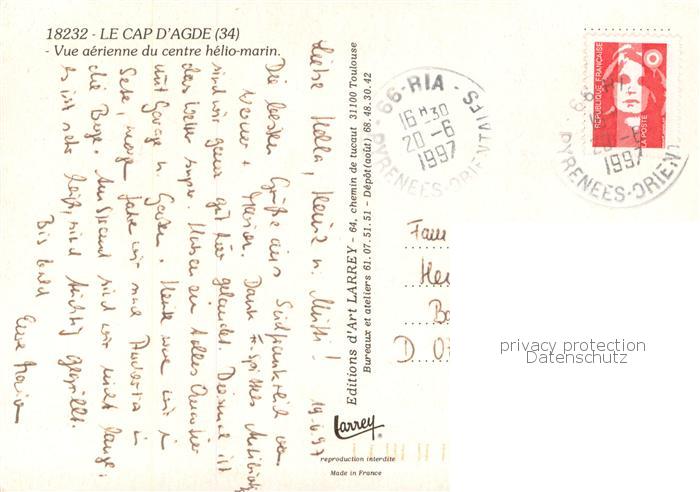 18232 - LE CAP D'AGDE (34)
- Vue aérienne du centre hélio-marin.
Liebe Holla, Heinz u. Mutti!
19.6.97
Die besten Grüße aus Südfrankreich von
Werner + Maria. Dank
sind wir ganz gut hier gelandet. Diesmal ist
das Wetter super. Haben ein tolles Quartier
mit Garage u. Garten. Heute waren wir in
Sete, morgen fahren wir nach Andorra in
die Berge. Am Strand sind wir nicht lange,
es ist sehr heiß, sind tüchtig gegrillt.
Bis bald
Eure Maria
Editions d'Art LARREY - 64, chemin de tucaut 31100 Toulouse
Bureaux et ateliers 61.07.51.51 - Dépôt (août) 68.48.30.42
Larrey
reproduction interdite
Made in France
66-RIA - 
16 H 30
20 -6
1997
PYRENEES-ORIENTALES
REPUBLIQUE FRANÇAISE
LA POSTE
1997
PYRENEES-ORIENT
Fam
Her
D O
privacy protection
Datenschutz